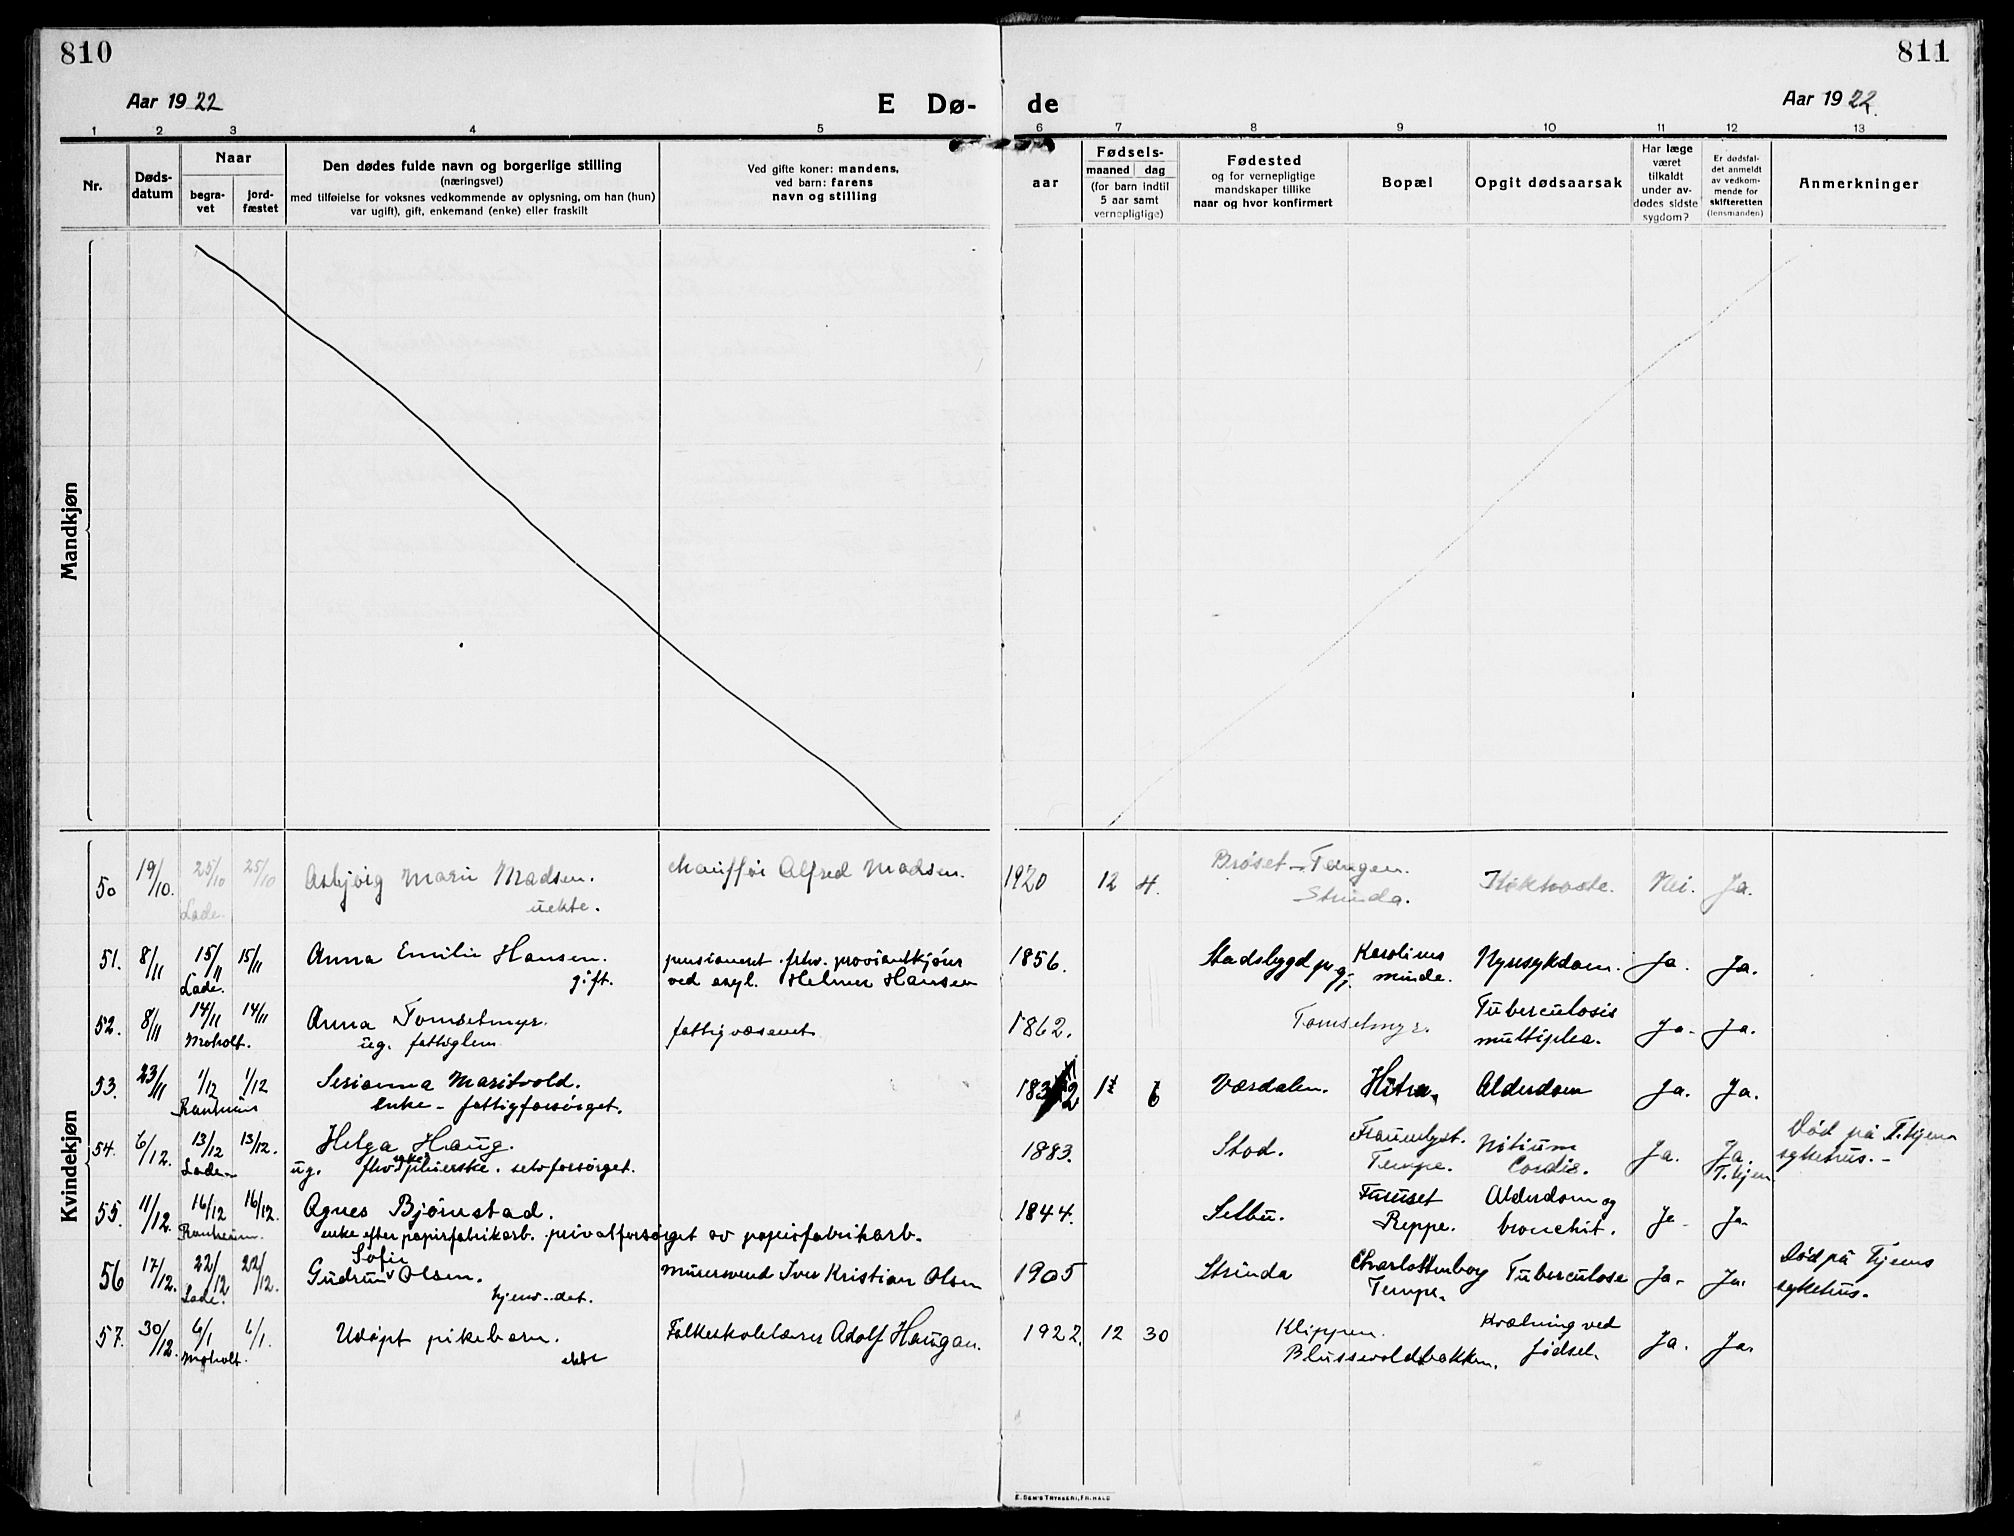 810
811
Aar 1922
E Dø-
de
Aar 1922.
1 2 3 4 5 6 7 8 9 10 11 12 13
Nr.
Døds-
datum
Naar
begra-
vet
jord-
fæstet
Den dødes fulde navn og borgerlige stilling
(næringsvei)
med tilføielse for voksnes vedkommende av oplysning, om han (hun)
var ugift), gift, enkemand (enke) eller fraskilt
Ved gifte koner: mandens,
ved barn: farens
navn og stilling
Fødsels-
aar
maaned dag
(for barn indtil
5 aar samt
vernepligtige)
Fødested
og for vernepligtige
mandskaper tillike
naar og hvor konfirmert
Bopæl
Opgit dødsaarsak
Har læge
været
tilkaldt
under av-
dødes sidste
sygdom?
Er dødsfal-
det anmeldt
av vedkom-
mende for
skifteretten
(lensmanden)
Anmerkninger
Mandkjøn
Kvindekjøn
50 19/10. 25/10 25/10 Asbjørg Marie Madsen. Alfred Madsen. 1920 12 4. Brøset - Tungen. Kikhoste. Nei. Ja.
Lade. uekte. Strinda.
51. 8/11 15/11 15/11 Anna Emilie Hansen. pensioneret frhv. proviantkjører 1856. Stadsbygd pgj. Karolines Nyresykdom. Ja. Ja.
Lade. gift. ved asyl. Helmer Hansen minde.
52. 8/11 14/11 14/11 Anna Tomsetmyr. fattigvæsenet 1862. Tomsetmyr. Tuberculosis Ja. Ja.
Moholt. ug. fattiglem multiplex.
53. 23/11 1/12 1/12 Serianna Maritvold. 1832 6 Værdalen. Hitra. Alderdom Ja. Ja.
Ranheim enke - fattigforsørget.
54. 6/12. 13/12 13/12. Helga Haug. 1883. Stod. Fruenlyst. Vitium Ja. Ja. Død på T.hjem
Lade. ug. fhv. selvforsørget. Tempe. Cordis. T.hjem sykehus. -
55. 11/12. 16/12 16/12. Agnes Bjørnstad. 1844. Selbu. Furuset Alderdom og Ja. Ja.
Ranheim. enke efter papirfabrikarb. privatforsørget av papirfabrikarb. Reppe. bronchit.
Sofie
56 17/12. 22/12 22/12. Gudrun Olsen. murersvend Iver Kristian Olsen 1905 Strinda Charlottenborg Tuberculose Ja. Ja. Død på Thjems
Lade. hjemv. dat. Tempe. sykehus.
57. 30/12. 6/1 6/1. Udøpt pikebarn. Folkeskolelærer Adolf Haugan. 1922. 12 30 Klippen. Kvælning ved Ja. Ja.
Moholt. ekte Blussevoldbakken. fødsel.
E. SEM'S TRYKKERI, FR.HALD